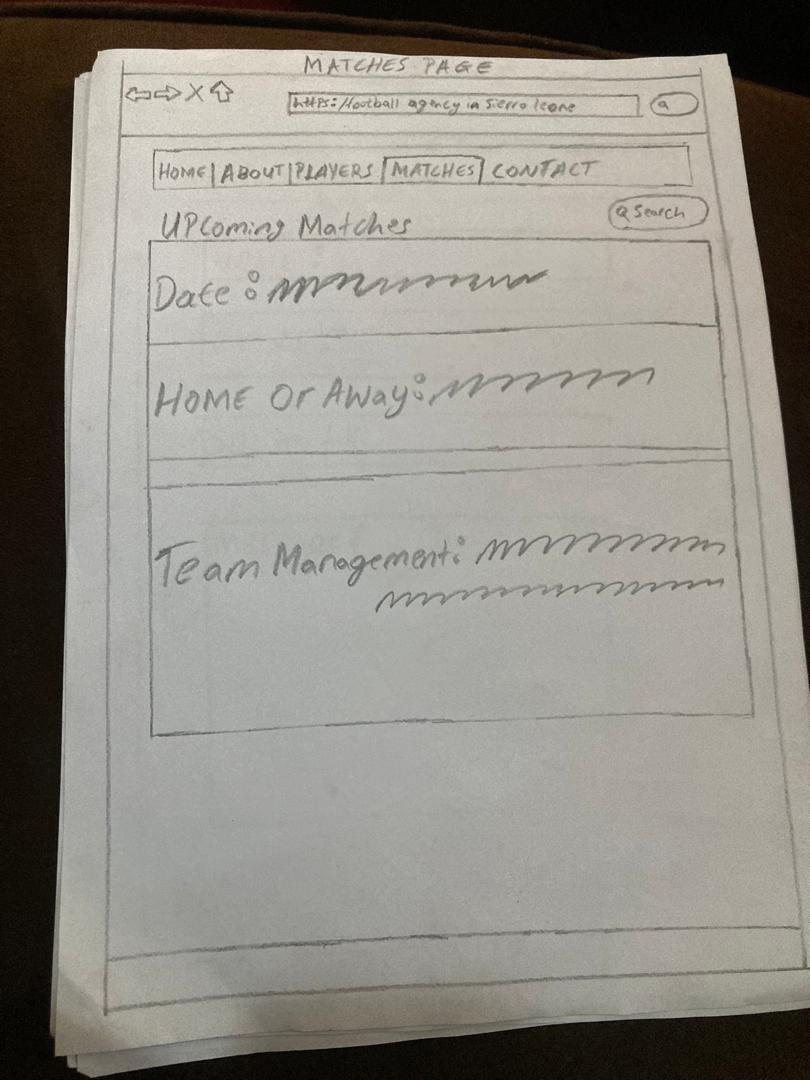 MATCHES PAGE
https://football agency in Sierra leone
HOME | ABOUT | PLAYERS | MATCHES | CONTACT
UPcoming Matches
Search
Date :
HOME Or AWay:
Team Management: